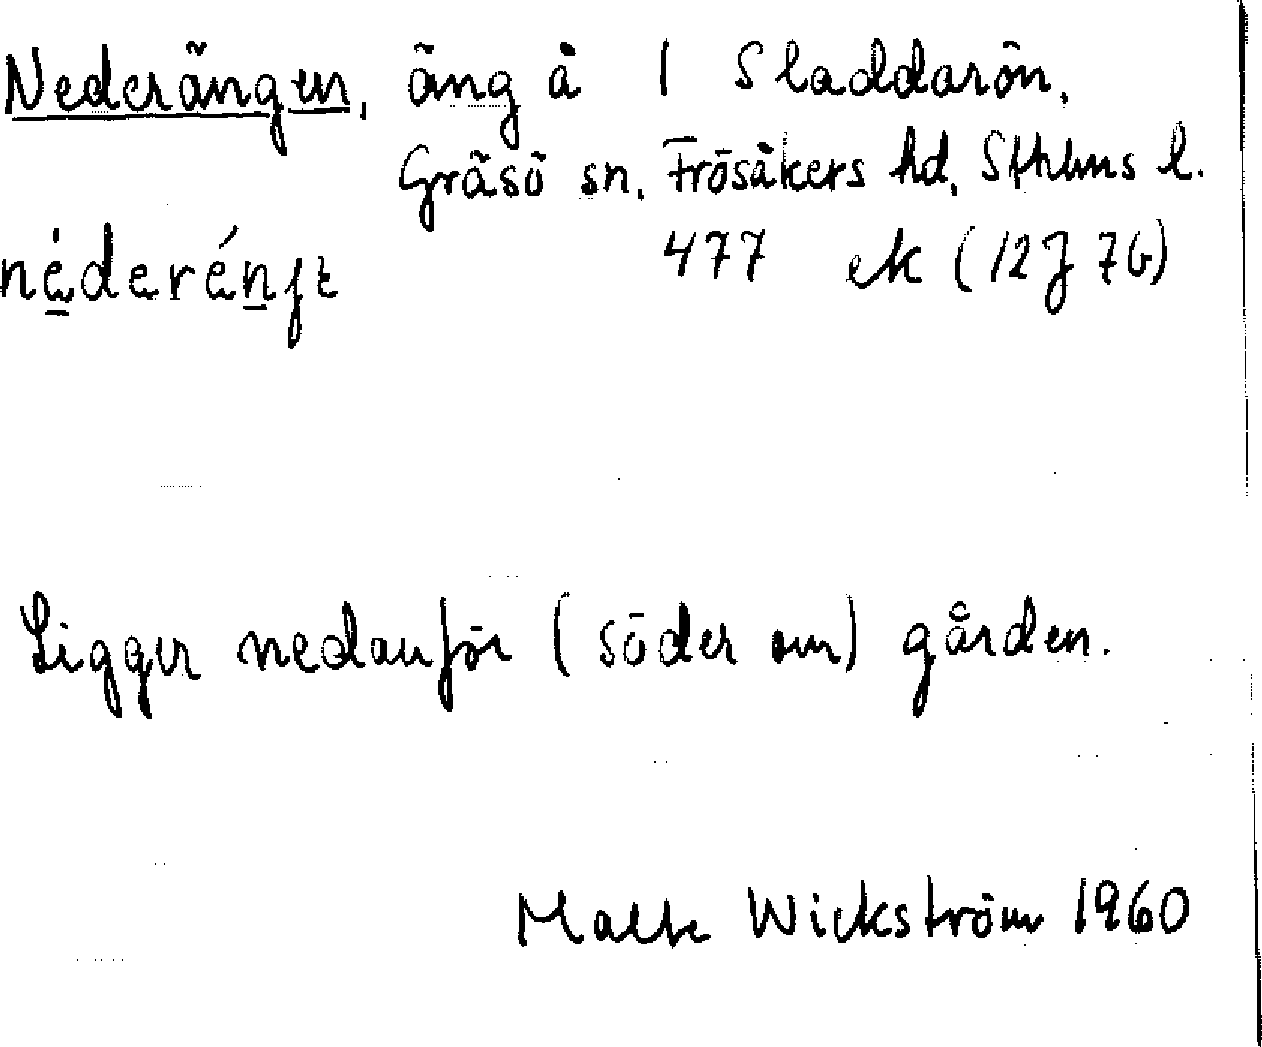 Nederängen, äng å 1 Sladdarön.
Gräsö sn. Frösåkers hd. Sthlms l.
477 ek (12J 7G)
Ligger nedanför (söder om) gården.
Malte Wickström 1960